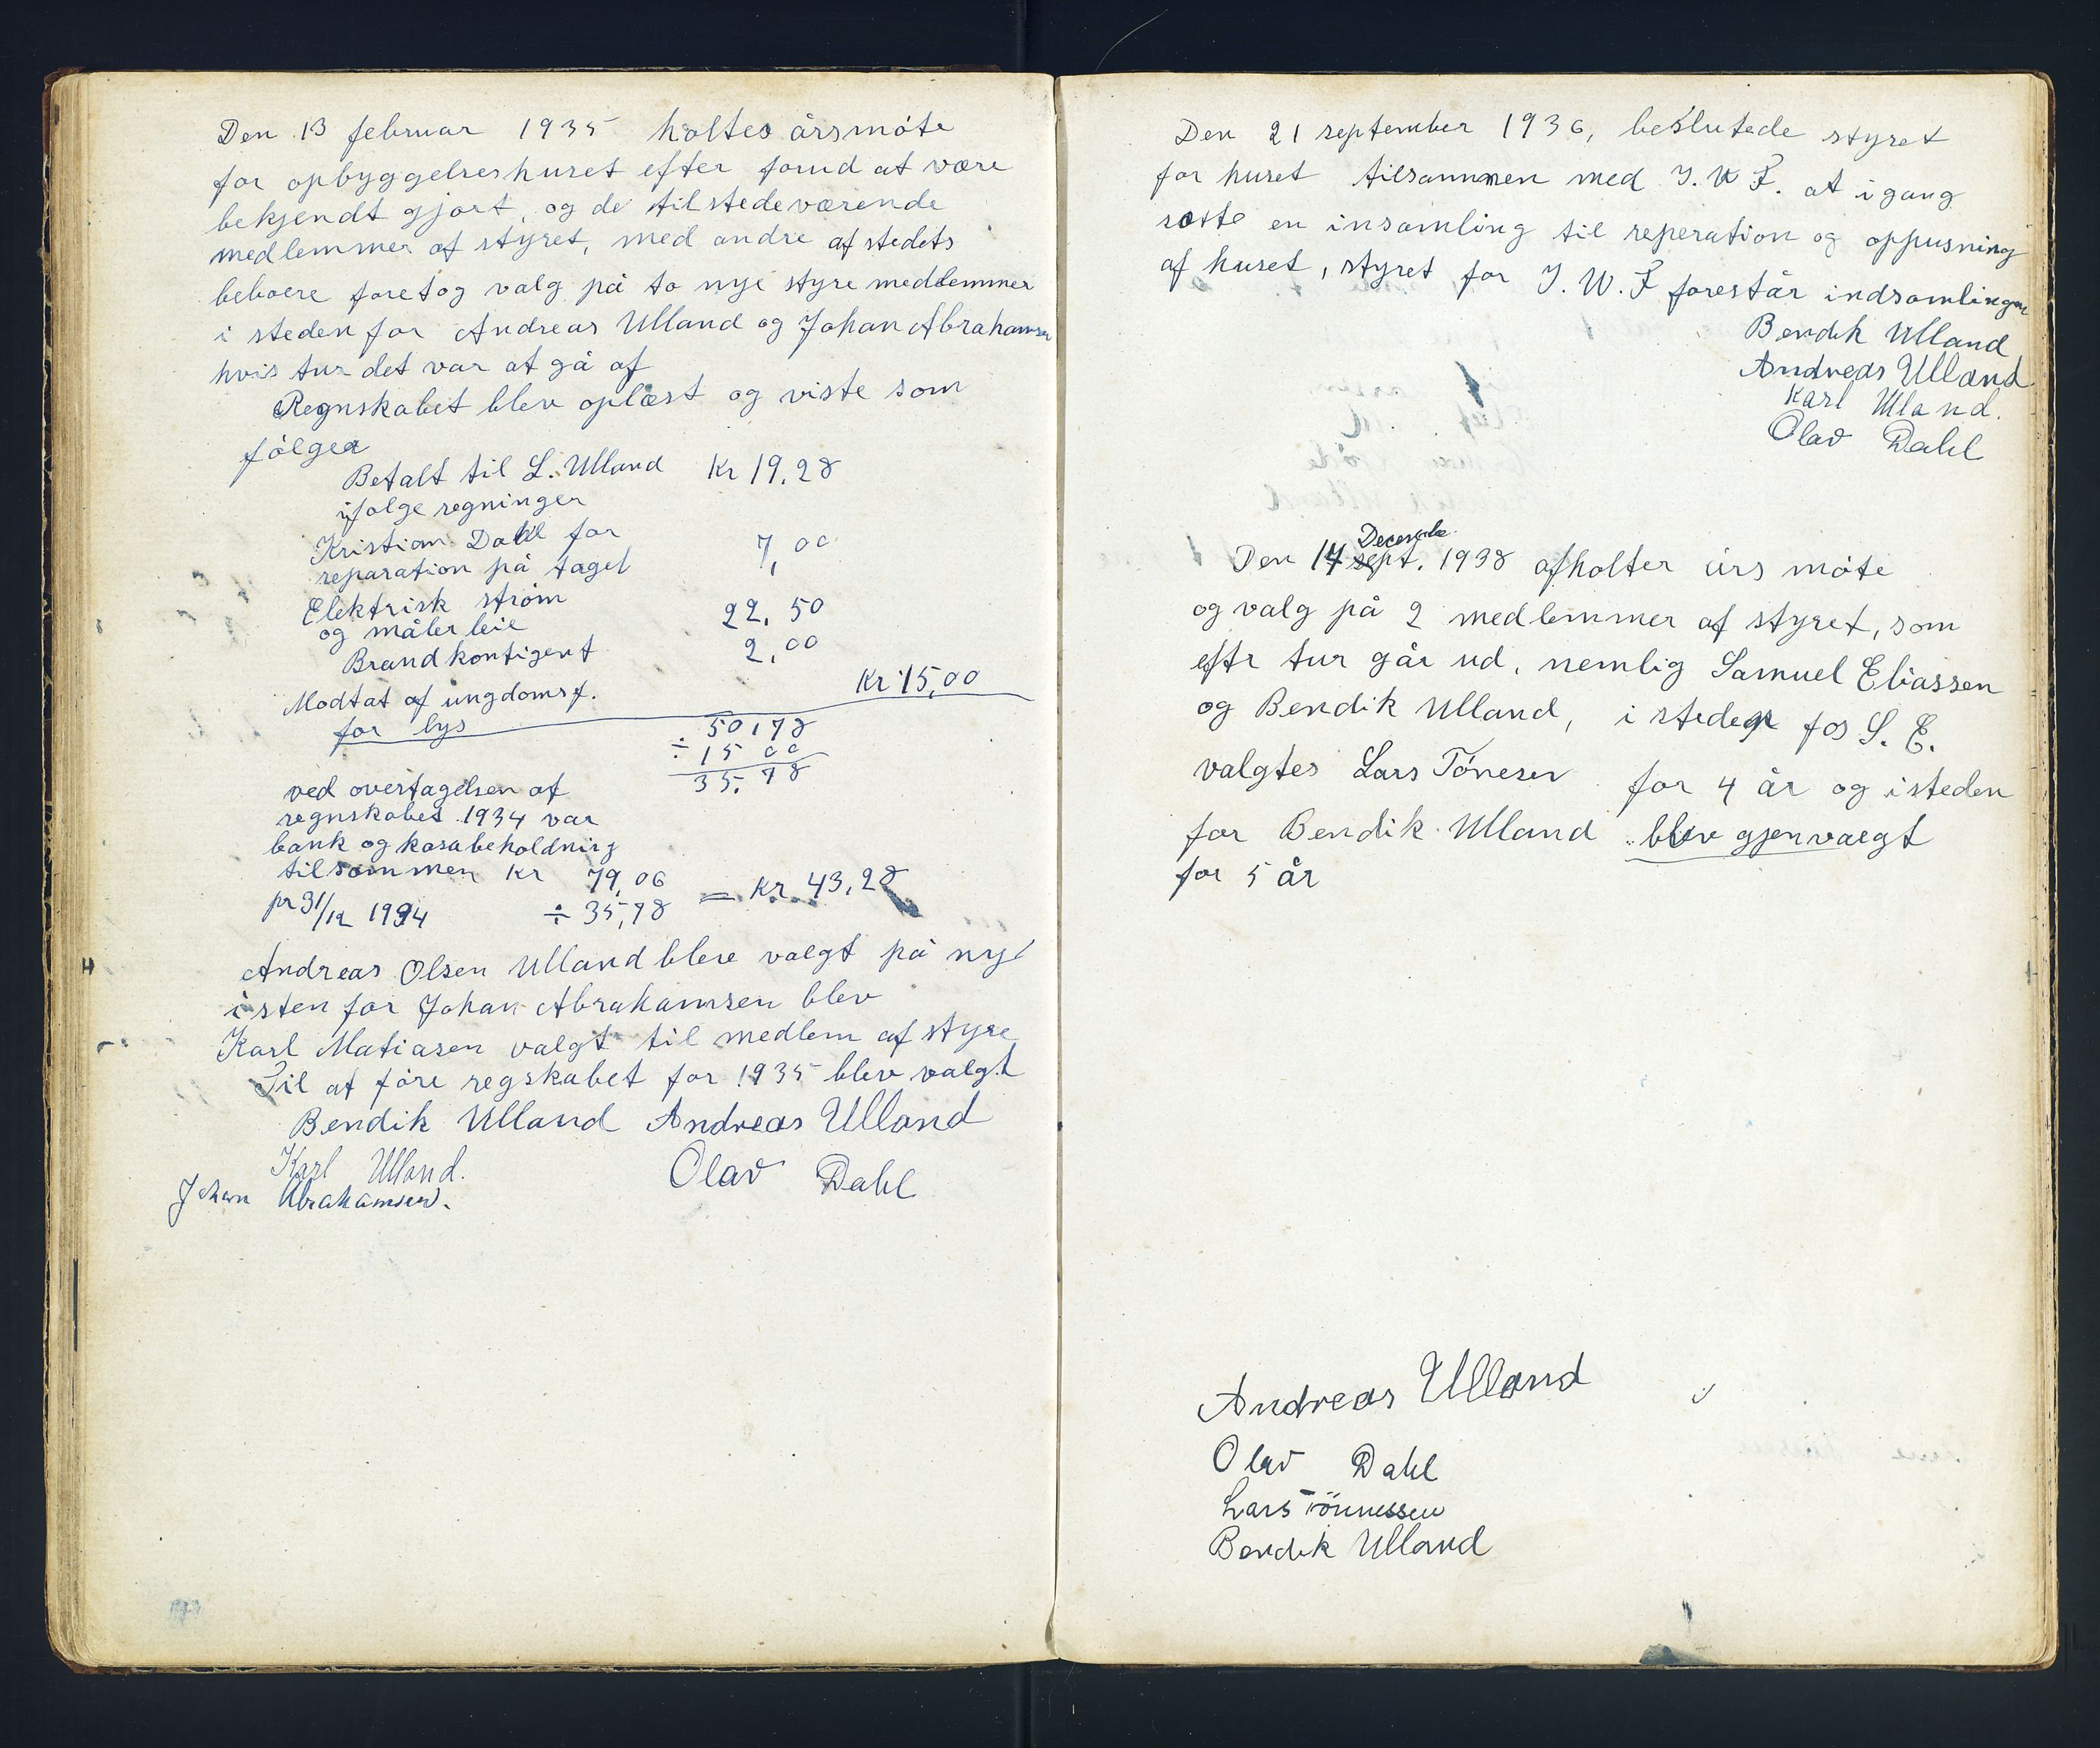 Den 13 februar 1935 holtes årsmöte
for opbyggelseshuset efter forud at være
bekjendt gjort, og de tilstedeværende
medlemmer af styret, med andre af stedets
beboere foretog valg på to nye styremedlemmer
i steden for Andreas Ulland og Johan Abrahamsen
hvis tur det var at gå af
Regnskabet blev oplæst og viste som
fölger
Betalt til L. Ulland Kr 19,28
ifölge regninger
Kristian Dahl for
reparation på taget 7,00
Elektrisk ström
og måler leie 22,50
Brandkontigent 2,00
Modtat af ungdomsf. Kr 15,00
for lys 50,78
÷ 15 00
35,78
ved overtagelsen af
regnskabet 1934 var
bank og kasabeholdning
tilsammen Kr 79,06
pr 31/12 1934 ÷ 35,78 = Kr 43,28
Andreas Olsen Ulland bleve valgt på nyt
isten for Johan Abrahamsen blev
Karl Matiasen valgt til medlem af styre
Til at före regskabet for 1935 blev valgt
Bendik Ulland Andreas Ulland
Karl Ulland. Olav Dahl
Johan Abrahamsen.
Den 21 september 1936, beslutede styret
for huset tilsammen med I. W F. at igang
sætte en insamling til reperation og oppusning
af huset, styret for I. W. F forestår indsamlingen
Bendik Ulland
Andreas Ulland
Karl Ulland.
Olav Dahl
Decembe
Den 14 sept. 1938 afholter års möte
og valg på 2 medlemmer af styret, som
eftr tur går ud, nemlig Samuel Eliassen
og Bendik Ulland, i steden for S. E.
valgtes Lars Tönesen for 4 år og isteden
for Bendik Ulland blev gjenvalgt
for 5 år
Andreas Ulland
Olav Dahl
Lars Tönnessen
Bendik Ulland